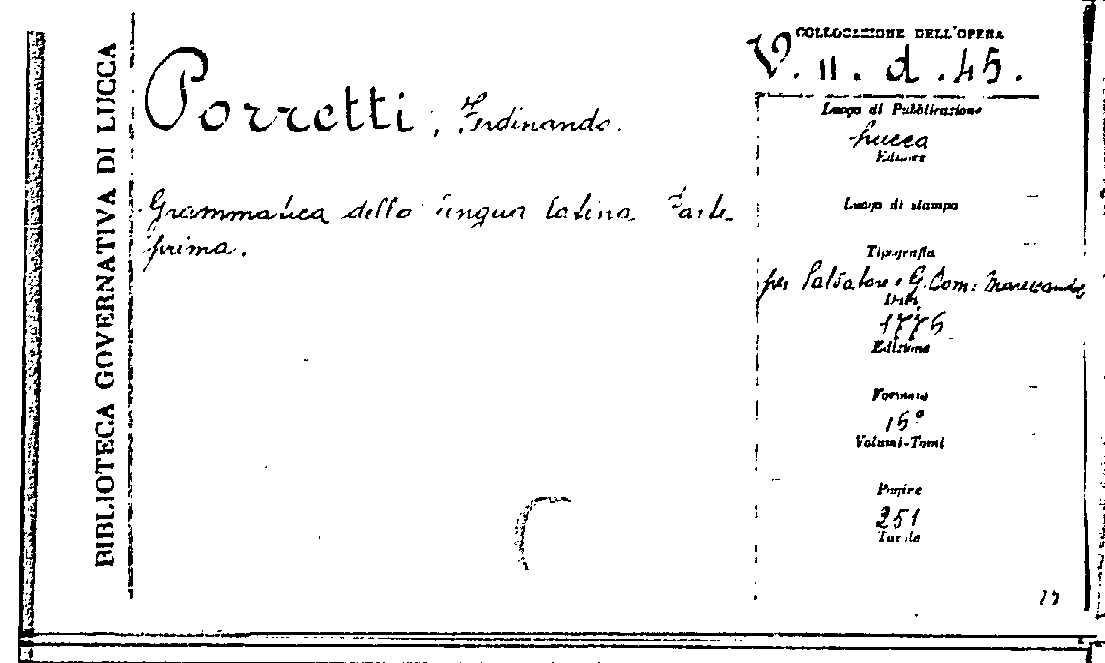 BIBLIOTECA GOVERNATIVA DI LUCCA
Porretti, Ferdinando.
Grammatica della lingua latina Parte
prima.
COLLOCAZIONE DELL'OPERA
V. II. d. 45.
Luogo di Pubblicazione
Lucca
Editore
Luogo di stampa
Tipografia
per Salvatore e G. Dom: Marescandoli
Data
Edizione
Formato
16°
Volumi-Tomi
Pagine
251
Tavole